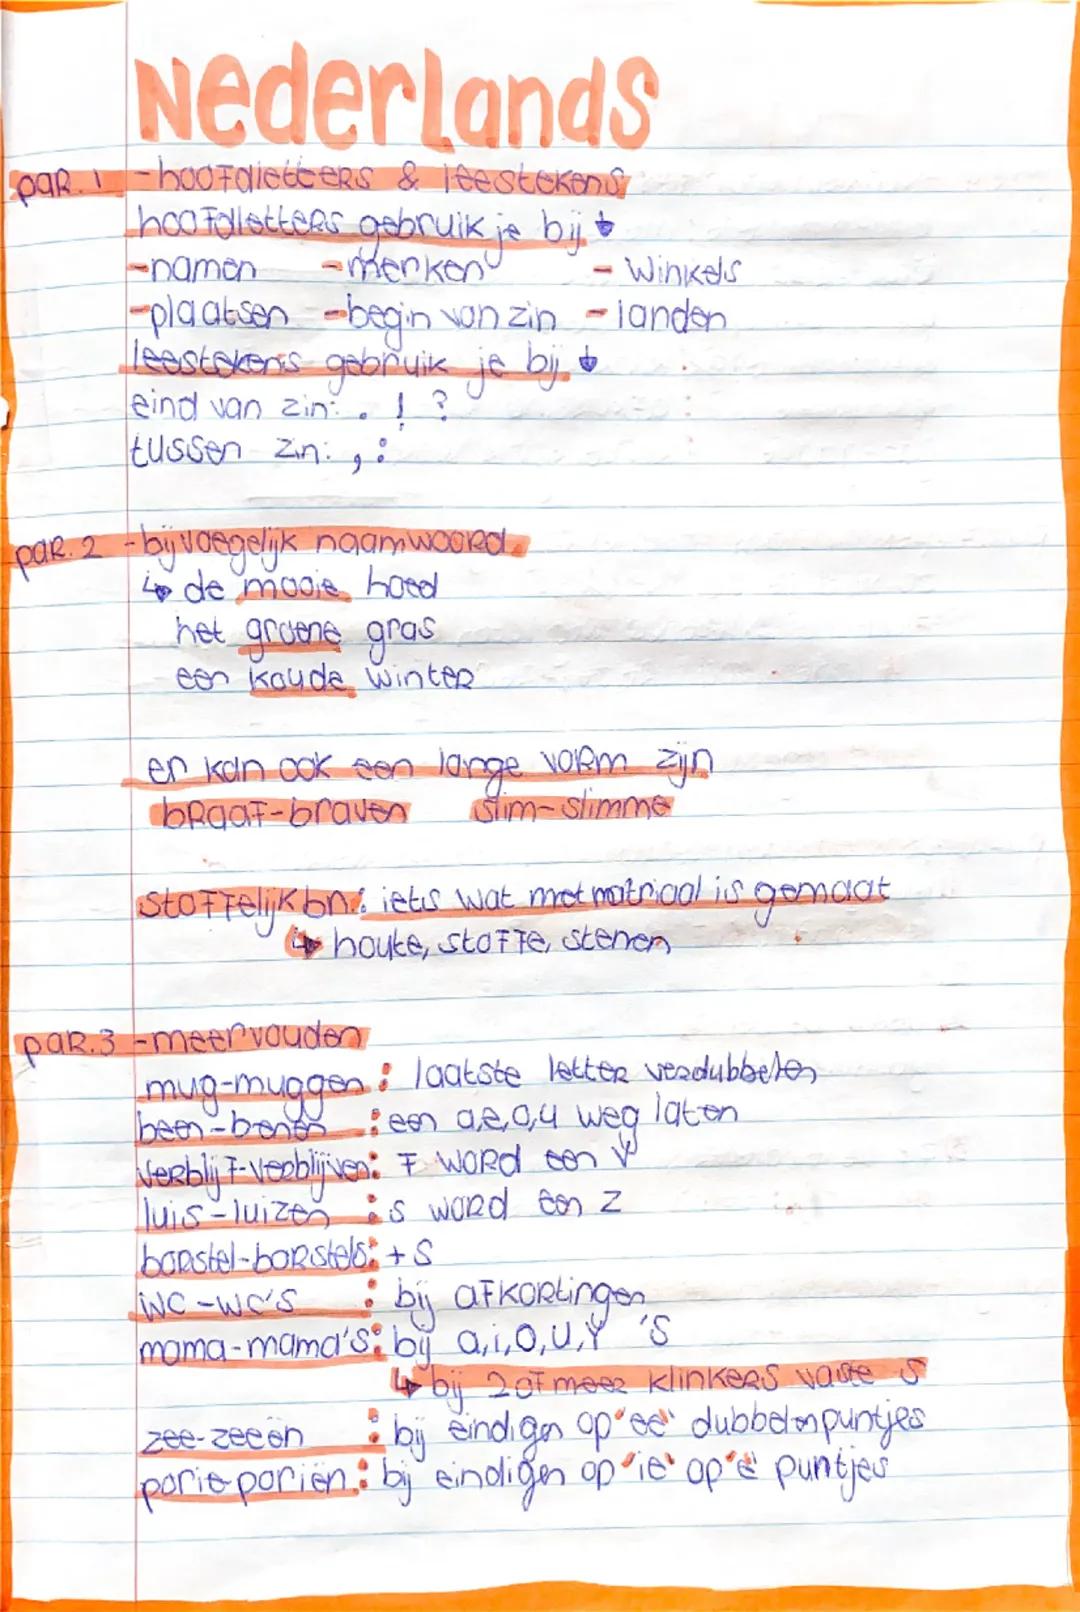 Nederlands
par. 1 -hoofdletters & leestekens
hoofdletters gebruik je bij ↓
-namen -merken - Winkels
-plaatsen -begin van zin - landen
leestekens gebruik je bij ↓
eind van zin: . ! ?
tussen zin: , :
par. 2 -bijvoegelijk naamwoord
↳ de mooie hoed
het groene gras
een koude winter
er kan ook een lange vorm zijn
braaf-braven slim-slimme
stoffelijk bn.: iets wat met matriaal is gemaat
↳ houte, stoffe, stenen
par.3 -meervouden
mug-muggen : laatste letter verdubbelen
been-benen : een a,e,o,u weg laten
verblijf-verblijven: f word een v
luis-luizen : s word een z
borstel-borstels: + s
WC-WC'S : bij afkortingen
mama-mama's: bij a,i,o,u,y 's
↳ bij 2 of meer klinkers vaste s
zee-zeeën : bij eindigen op 'ee' dubbelenpuntjes
porie-poriën : bij eindigen op 'ie' op 'e' puntjes